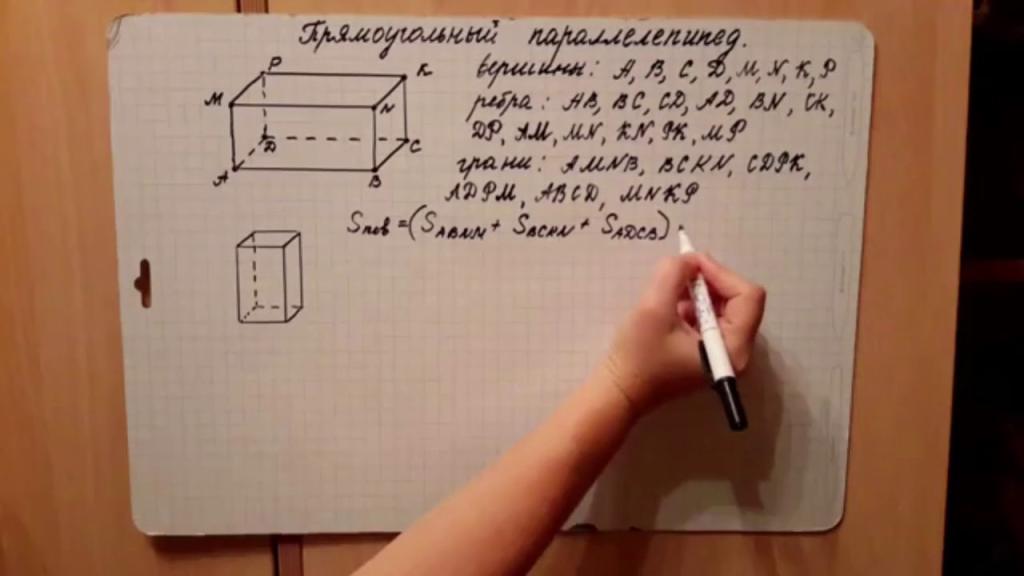 Прямоугольный параллелепипед.
вершины: A, B, C, D, M, N, K, P
ребра: AB, BC, CD, AD, BN, CK,
DP, AM, MN, KN, PK, MP
грани: AMNB, BCKN, CDPK,
ADPM, ABCD, MNKP
P
K
M
N
D
C
A
B
Sпов = (SABNM + SBCKN + SADCB) ·